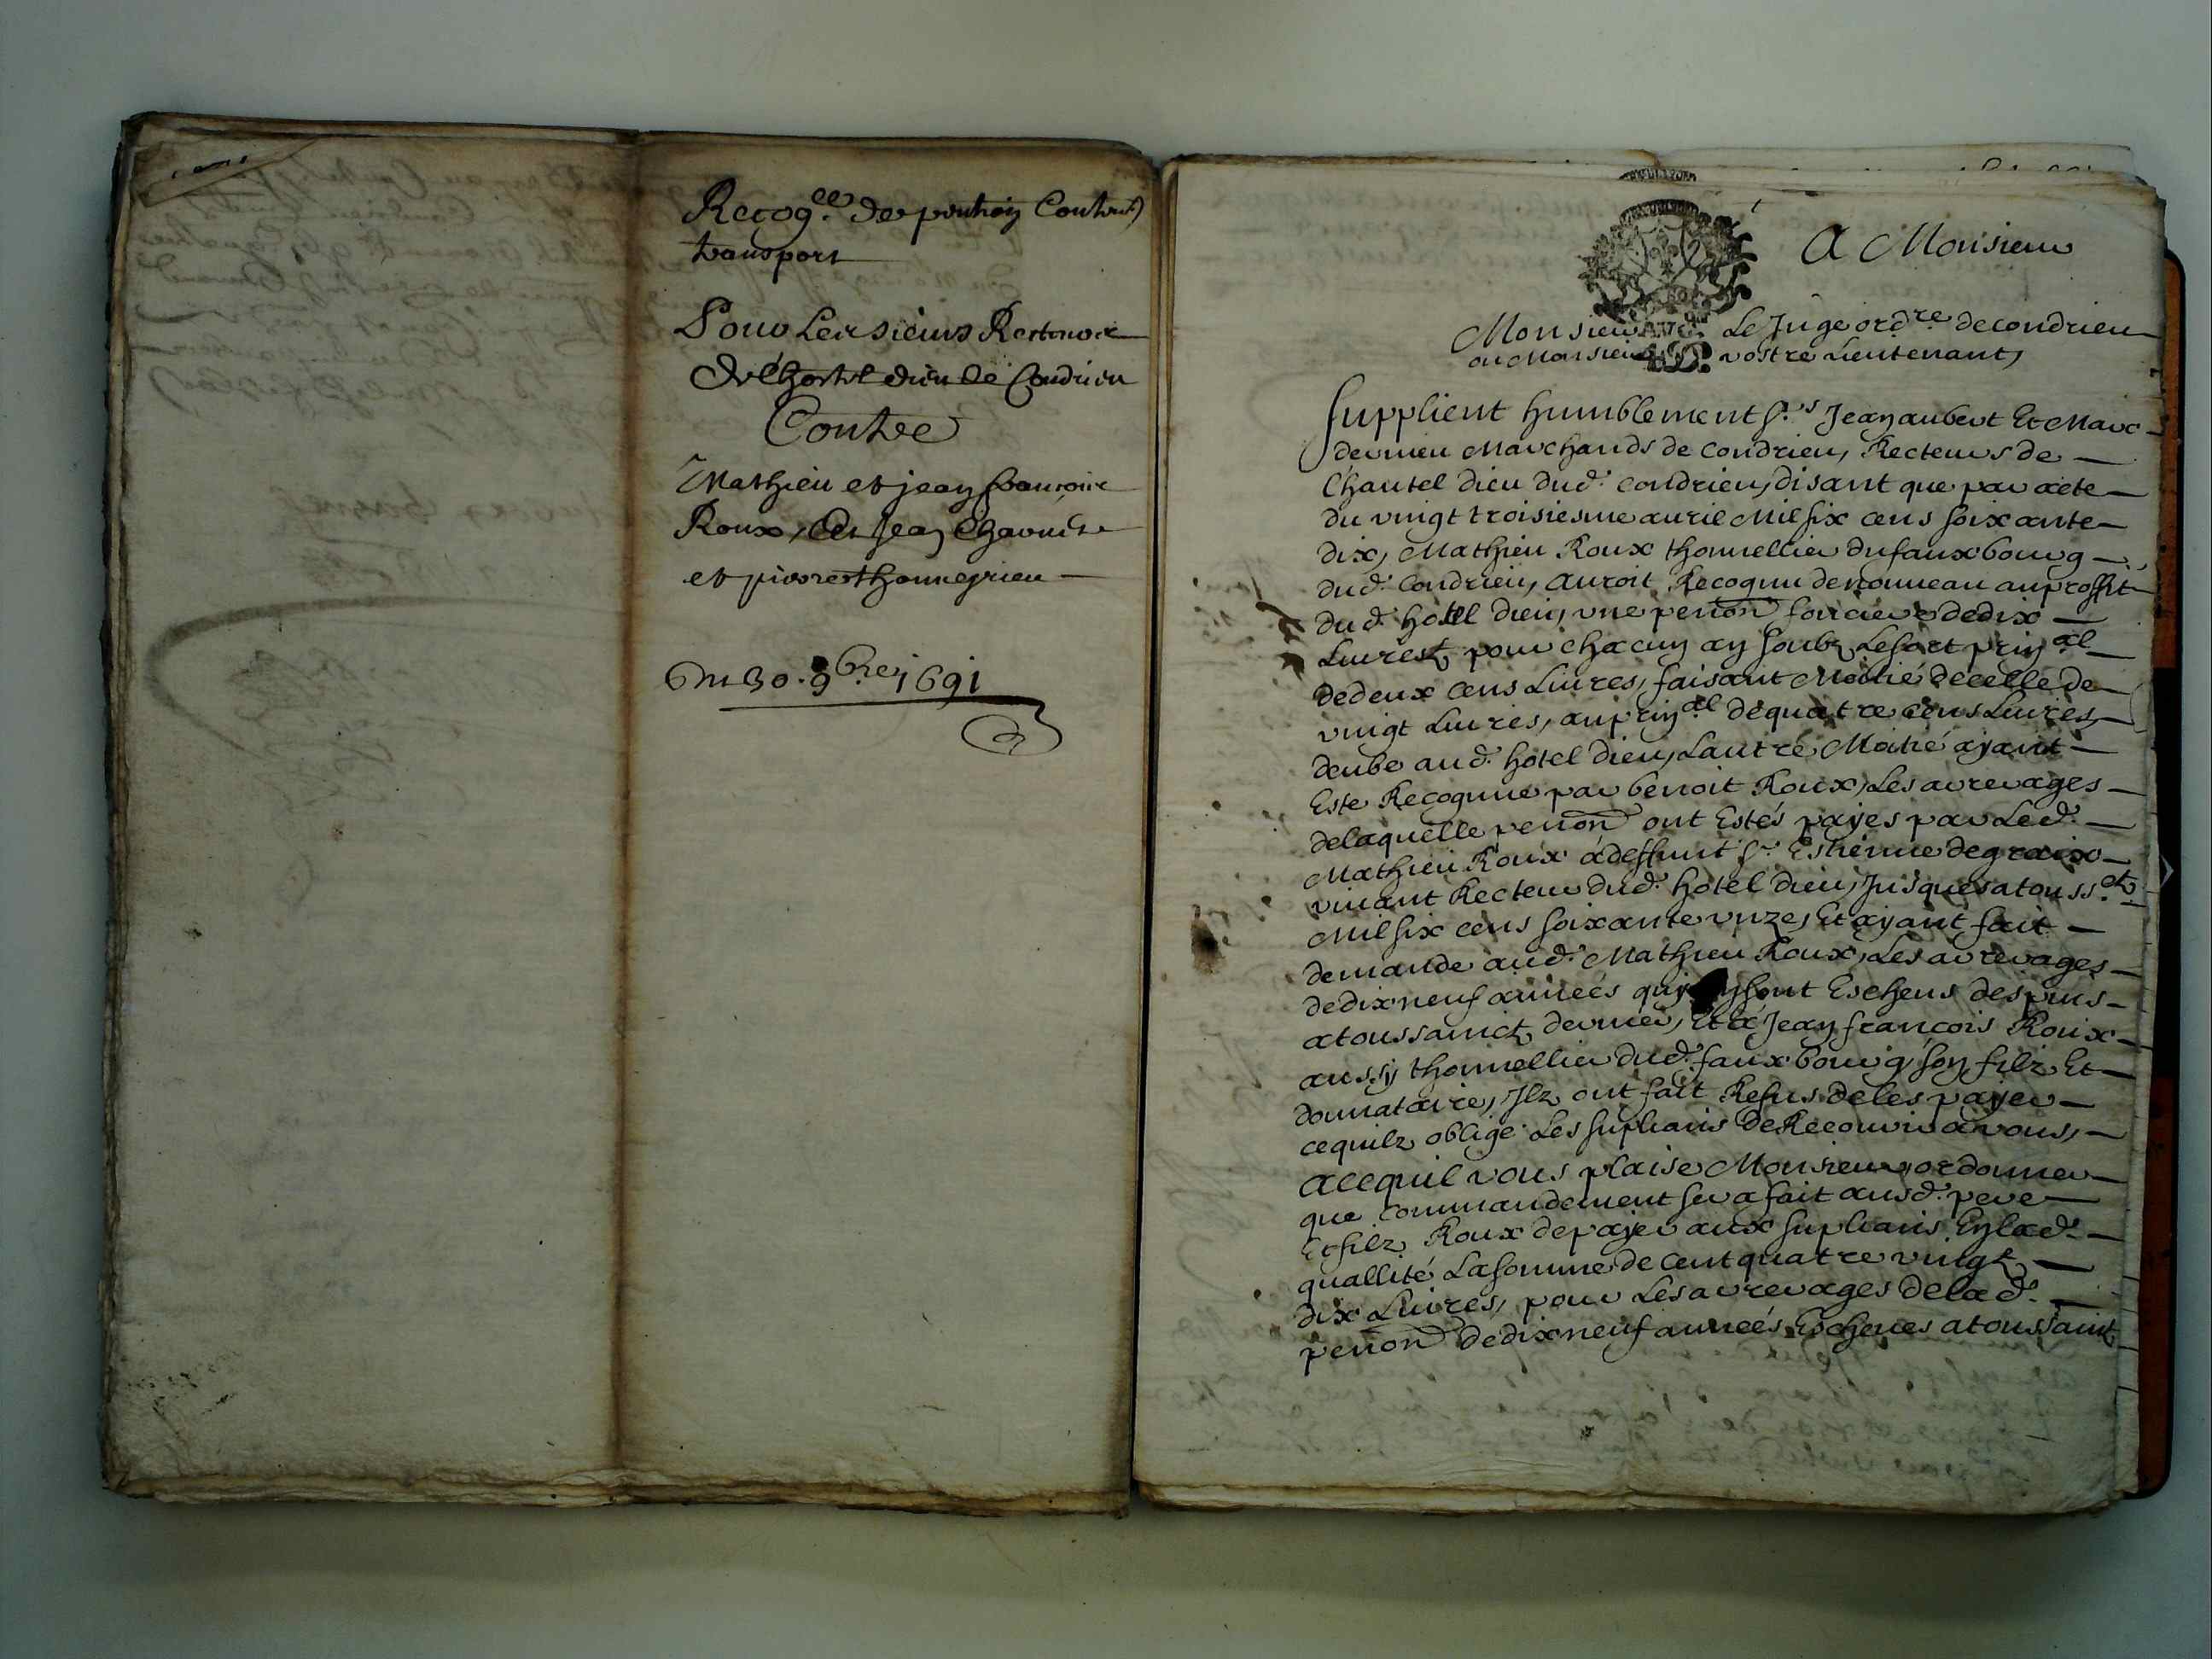 Recog.ce de pention Contract
transport
Pour Les sieurs Recteurs
de l'hostel dieu de Condrieu
Contre
Mathieu et jean francois
Roux, Et Jean
et pierre
Du 30. 9bre 1691
A Monsieur
Monsieur Le Juge ord.re de condrieu
ou Monsieur vostre Lieutenant,
Supplient humblement s.rs Jean aubert Et Marc
dernieu Marchands de Condrieu, Recteurs de
L'hautel dieu dud. Condrieu, disant que par acte
du vingt troisiesme auril Mil six cens soixante
dix, Mathieu Roux thonnellier du fauxbourg
dud. Condrieu, auroit Recognu de nouueau au proffit
dud. hotel dieu, vne penon fonciere de dix
Liures pour chacun an soubz Le sort prin.al
de deux cens Liures, faisant Moitié de celle de
vingt Liures, au prin.al de quatre cens Liures,
deube aud. hotel dieu, Lautre Moitié ayant
Esté Recognue par benoit Roux, Les arrerages
de laquelle penon ont Estés payes par Led.
Mathieu Roux a deffunt s.r Estienne degraix
viuant Recteur dud. hotel dieu, Jusques a touss.ctz
Mil six cens soixante vnze, Et ayant fait
demande aud. Mathieu Roux, Les arrerages
de dix neuf années quy sont Escheus despuis
a toussainctz dernier, Et a Jean francois Roux
aussy thonnellier dud. fauxbourg son filz Et
donnataire, Ilz ont fait Refus de les payer
ce quilz oblige Les suplians de Recourir a vous,
A ce quil vous plaise Monsieur, ordonner
que commandement sera fait ausd. pere
Et filz Roux de payer aux suplians En lad.
quallité La somme de cent quatre vingt
dix Liures, pour Les arrerages de lad.
penon de dix neuf années Escheues a toussaint